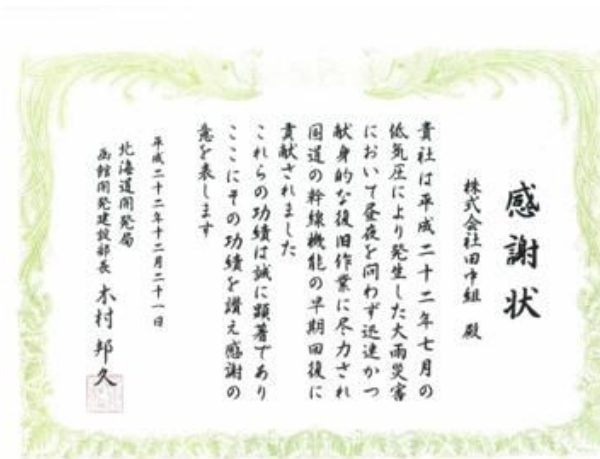 感謝状
株式会社田中組 殿
貴社は平成二十二年七月の
低気圧により発生した大雨災害
において昼夜を問わず迅速かつ
献身的な復旧作業に尽力され
国道の幹線機能の早期回復に
貢献されました
これらの功績は誠に顕著であり
ここにその功績を讃え感謝の
意を表します
平成二十二年十二月二十一日
北海道開発局
函館開発建設部長 木村邦久